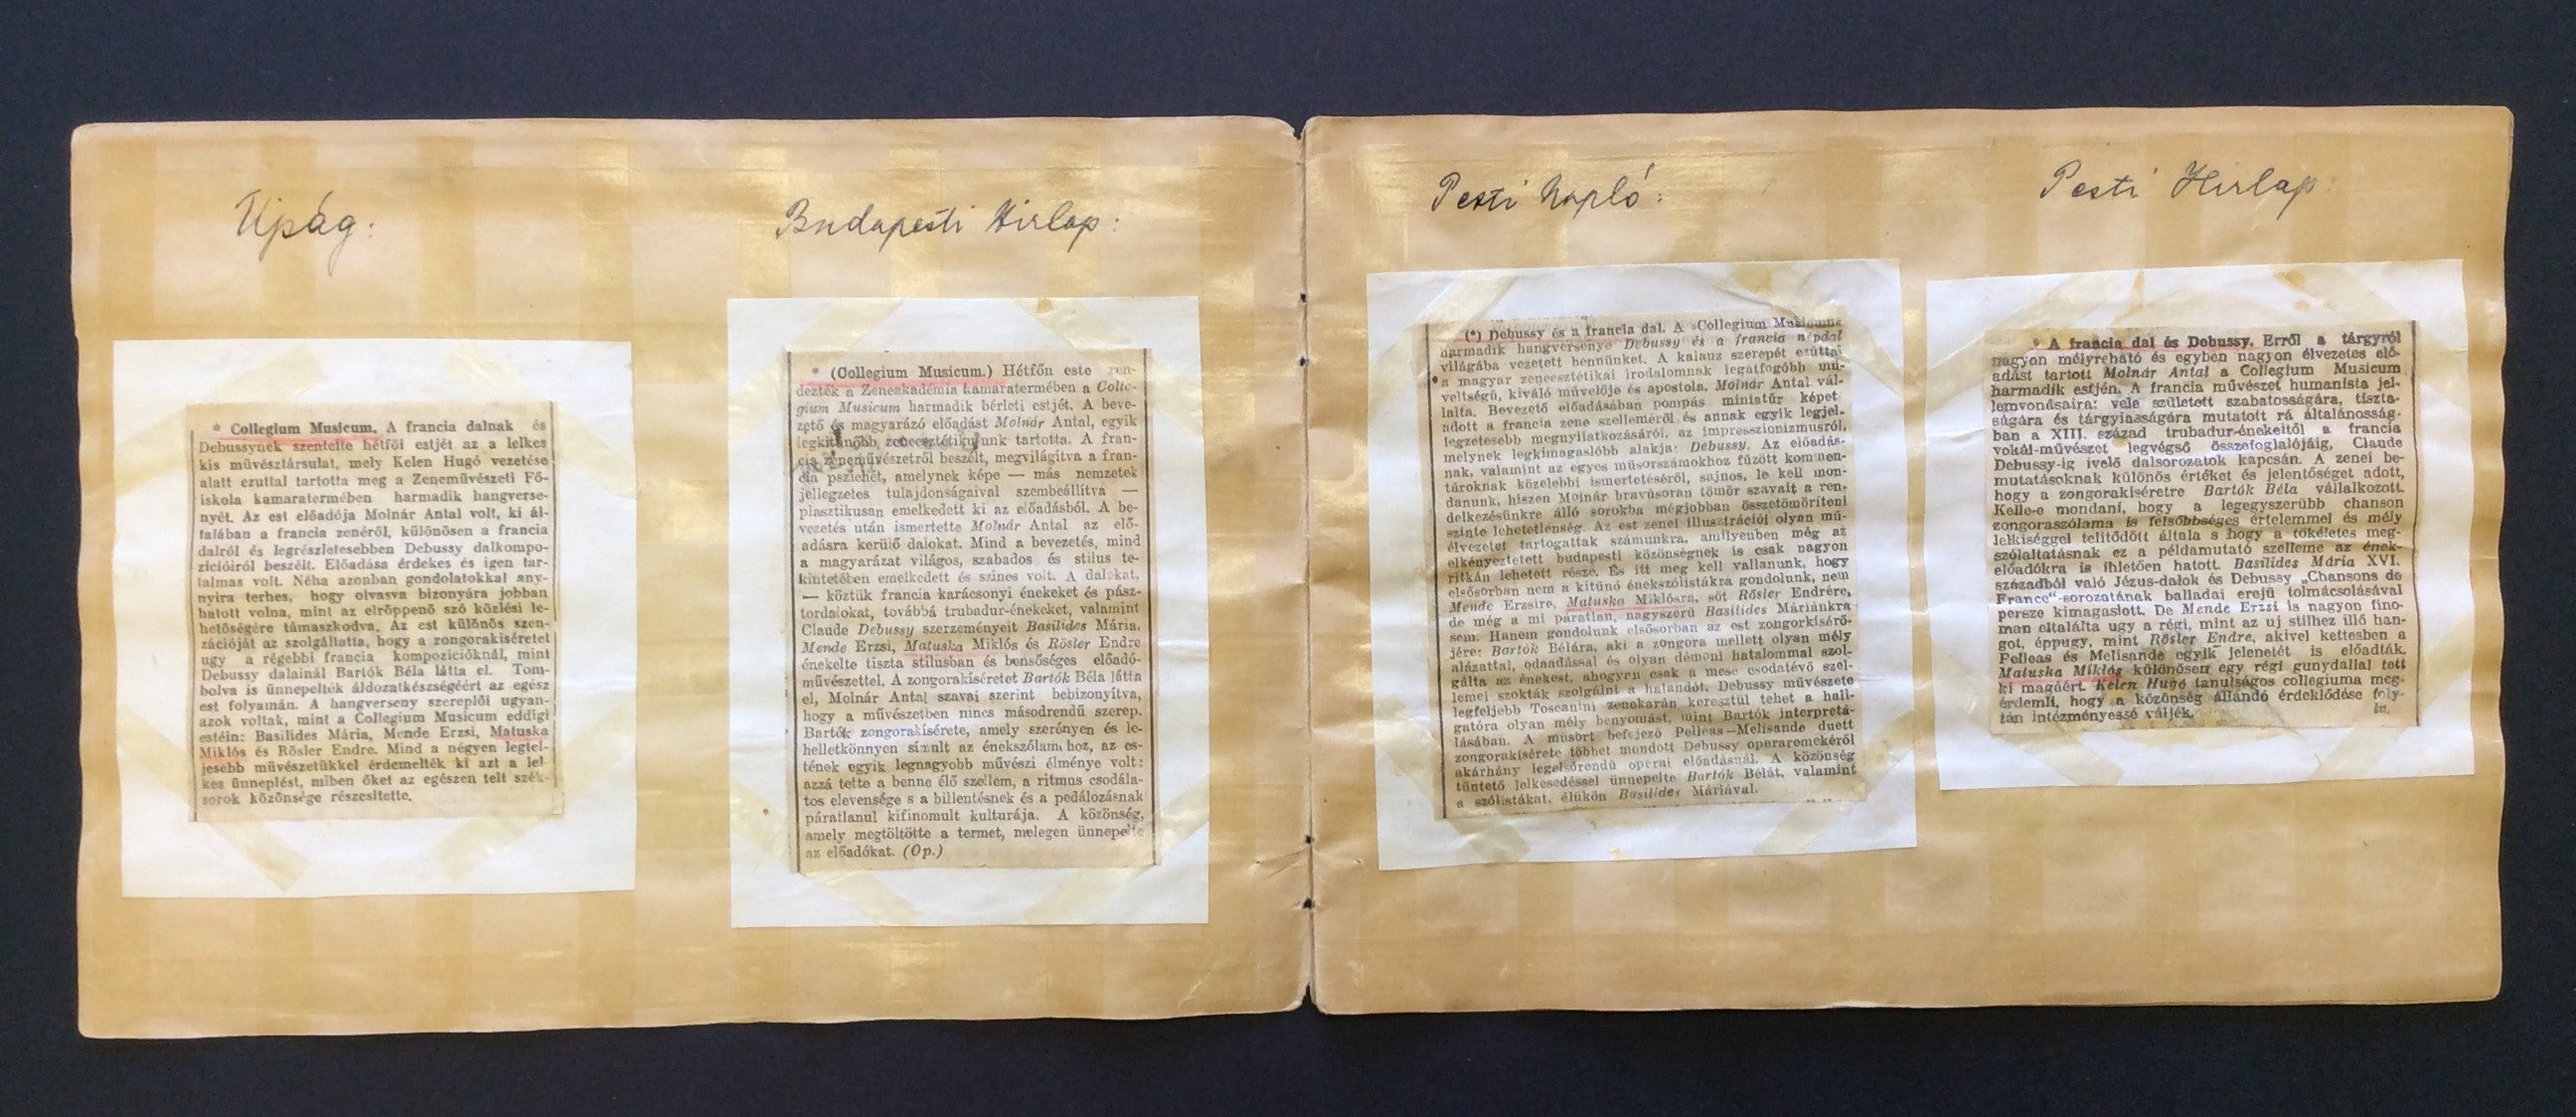 Ujság:
* Collegium Musicum. A francia dalnak és
Debussynek szentelte hétfői estjét az a lelkes
kis művésztársulat, mely Kelen Hugó vezetése
alatt ezuttal tartotta meg a Zeneművészeti Fő-
iskola kamaratermében harmadik hangverse-
nyét. Az est előadója Molnár Antal volt, ki ál-
talában a francia zenéről, különösen a francia
dalról és legrészletesebben Debussy dalkompo-
zicióiról beszélt. Előadása érdekes és igen tar-
talmas volt. Néha azonban gondolatokkal any-
nyira terhes, hogy olvasva bizonyára jobban
hatott volna, mint az elröppenő szó közlési le-
hetőségére támaszkodva. Az est különös szen-
zációját az szolgáltatta, hogy a zongorakiséretet
ugy a régebbi francia kompozicióknál, mint
Debussy dalainál Bartók Béla látta el. Tom-
bolva is ünnepelték áldozatkészségéért az egész
est folyamán. A hangverseny szereplői ugyan-
azok voltak, mint a Collegium Musicum eddigi
estéin: Basilides Mária, Mende Erzsi, Matuska
Miklós és Rösler Endre. Mind a négyen legtel-
jesebb művészetükkel érdemelték ki azt a lel-
kes ünneplést, miben őket az egészen telt szék-
sorok közönsége részesitette.
Budapesti Hirlap:
* (Collegium Musicum.) Hétfőn este ren-
dezték a Zeneakadémia kamaratermében a Colle-
gium Musicum harmadik bérleti estjét. A beve-
zető és magyarázó előadást Molnár Antal, egyik
legkitűnőbb zeneesztétikusunk tartotta. A fran-
cia zeneművészetről beszélt, megvilágítva a fran-
cia pszichét, amelynek képe — más nemzetek
jellegzetes tulajdonságaival szembeállítva —
plasztikusan emelkedett ki az előadásból. A be-
vezetés után ismertette Molnár Antal az elő-
adásra kerülő dalokat. Mind a bevezetés, mind
a magyarázat világos, szabados és stilus te-
kintetében emelkedett és színes volt. A dalokat,
— köztük francia karácsonyi énekeket és pász-
tordalokat, továbbá trubadur-énekeket, valamint
Claude Debussy szerzeményeit Basilides Mária,
Mende Erzsi, Matuska Miklós és Rösler Endre
énekelte tiszta stilusban és bensőséges előadó-
művészettel. A zongorakíséretet Bartók Béla látta
el, Molnár Antal szavai szerint bebizonyítva,
hogy a művészetben nincs másodrendű szerep.
Bartók zongorakísérete, amely szerényen és le-
helletkönnyen simult az énekszólamhoz, az es-
tének egyik legnagyobb művészi élménye volt:
azzá tette a benne élő szellem, a ritmus csodála-
tos elevensége s a billentésnek és a pedálozásnak
páratlanul kifinomult kulturája. A közönség,
amely megtöltötte a termet, melegen ünnepelte
az előadókat. (Op.)
Pesti Napló:
(*) Debussy és a francia dal. A Collegium Musicum
harmadik hangversenye Debussy és a francia népdal
világába vezetett bennünket. A kalauz szerepét ezúttal
a magyar zeneesztétikai irodalomnak legátfogóbb mű-
veltségű, kiváló művelője és apostola, Molnár Antal vál-
lalta. Bevezető előadásában pompás miniatűr képet
adott a francia zene szelleméről és annak egyik legjel-
legzetesebb megnyilatkozásáról, az impresszionizmusról,
melynek legkimagaslóbb alakja: Debussy. Az előadás-
nak, valamint az egyes műsorszámokhoz fűzött kommen-
tároknak közelebbi ismertetéséről, sajnos, le kell mon-
danunk, hiszen Molnár bravúrosan tömör szavait a ren-
delkezésünkre álló sorokba mégjobban összetömöríteni
szinte lehetetlenség. Az est zenei illusztrációi olyan mű-
élvezetet tartogattak számunkra, amilyenben még az
elkényeztetett budapesti közönségnek is csak nagyon
ritkán lehetett része. És itt meg kell vallanunk, hogy
elsősorban nem a kitűnő énekszólistákra gondolunk, nem
Mende Erzsire, Matuska Miklósra, sőt Rösler Endrére,
de még a mi páratlan, nagyszerű Basilides Máriánkra
sem. Hanem gondolunk elsősorban az est zongorkísérő-
jére: Bartók Bélára, aki a zongora mellett olyan mély
alázattal, odaadással és olyan démoni hatalommal szol-
gálta az énekest, ahogyan csak a mese csodatévő szel-
lemei szokták szolgálni a halandót. Debussy művészete
legfeljebb Toscanini zenekarán keresztül tehet a hall-
gatóra olyan mély benyomást, mint Bartók interpretá-
lásában. A műsort befejező Pelleas—Melisande duett
zongorakísérete többet mondott Debussy operaremekéről
akárhány legelsőrendű operai előadásnál. A közönség
tüntető lelkesedéssel ünnepelte Bartók Bélát, valamint
a szólistákat, élükön Basilides Máriával.
Pesti Hirlap:
* A francia dal és Debussy. Erről a tárgyról
nagyon mélyreható és egyben nagyon élvezetes elő-
adást tartott Molnár Antal a Collegium Musicum
harmadik estjén. A francia művészet humanista jel-
lemvonásaira: vele született szabatosságára, tiszta-
ságára és tárgyiasságára mutatott rá általánosság-
ban a XIII. század trubadur-énekeitől a francia
vokál-művészet legvégső összefoglalójáig, Claude
Debussy-ig ivelő dalsorozatok kapcsán. A zenei be-
mutatásoknak különös értéket és jelentőséget adott,
hogy a zongorakiséretre Bartók Béla vállalkozott.
Kelle-e mondani, hogy a legegyszerübb chanson
zongoraszólama is felsőbbséges értelemmel és mély
lelkiséggel telitődött általa s hogy a tökéletes meg-
szólaltatásnak ez a példamutató szelleme az ének-
előadókra is ihletően hatott. Basilides Mária XVI.
századból való Jézus-dalok és Debussy „Chansons de
France"-sorozatának balladai erejű tolmácsolásával
persze kimagaslott. De Mende Erzsi is nagyon fino-
man eltalálta ugy a régi, mint az uj stilhez illő han-
got, éppugy, mint Rösler Endre, akivel kettesben a
Pelleas és Melisande egyik jelenetét is előadták.
Matuska Miklós különösen egy régi gunydallal tett
ki magáért. Kelen Hugó tanulságos collegiuma meg-
érdemli, hogy a közönség állandó érdeklődése foly-
tán intézményessé váljék. ln.